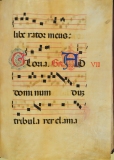 libe rator meus:
Gloria. Ps. AD VII
dominum dum
tribula rer clama